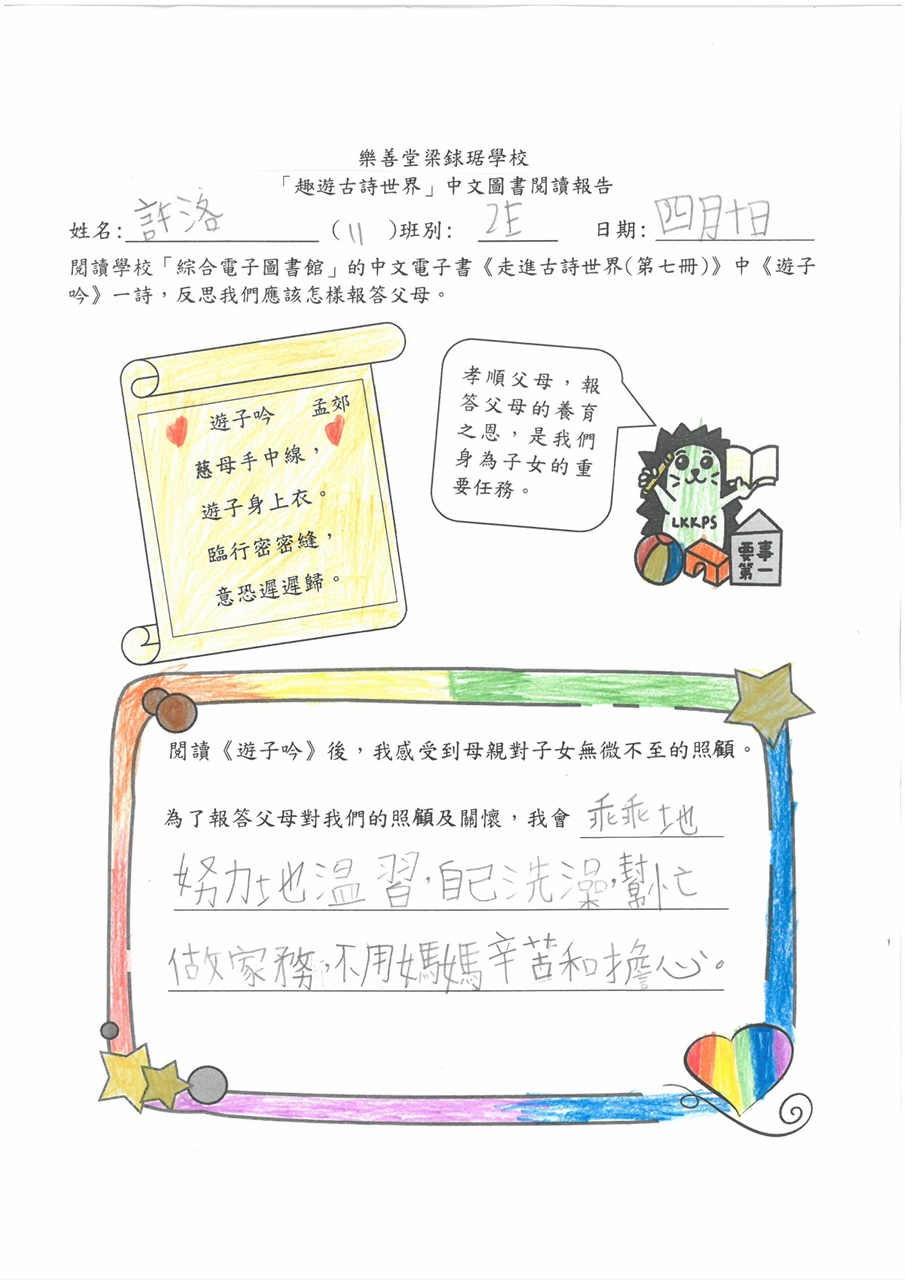 樂善堂梁銶琚學校
「趣遊古詩世界」中文圖書閱讀報告
姓名:許洛 (11)班別: 2E 日期:四月十日
閱讀學校「綜合電子圖書館」的中文電子書《走進古詩世界(第七冊)》中《遊子
吟》一詩,反思我們應該怎樣報答父母。
遊子吟 孟郊
慈母手中線,
遊子身上衣。
臨行密密縫,
意恐遲遲歸。
孝順父母,報
答父母的養育
之恩,是我們
身為子女的重
要任務。
LKKPS
要事
第一
閱讀《遊子吟》後,我感受到母親對子女無微不至的照顧。
為了報答父母對我們的照顧及關懷,我會 乖乖地
努力地溫習,自己洗澡,幫忙
做家務,不用媽媽辛苦和擔心。